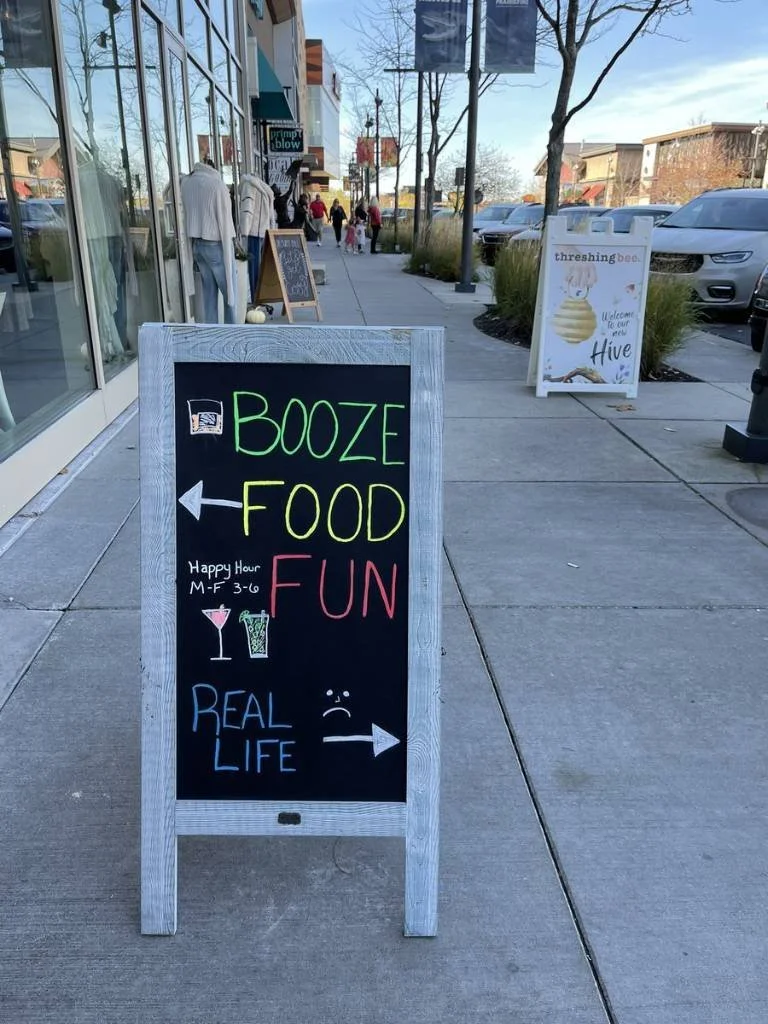 primp
& blow
threshing bee.
Welcome
to our
new
Hive
BOOZE
FOOD
Happy Hour
M-F 3-6
FUN
REAL
LIFE